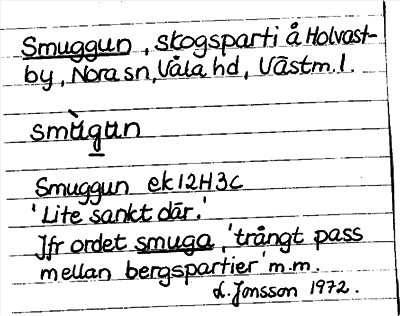 Smuggun, skogsparti å Holvast-
by, Nora sn, Våla hd, Västm. l.
smùgu̱n
Smuggun ek 12H3c
'Lite sankt där.'
Jfr ordet smuga, 'trångt pass
mellan bergspartier' m.m.
L. Jonsson 1972.